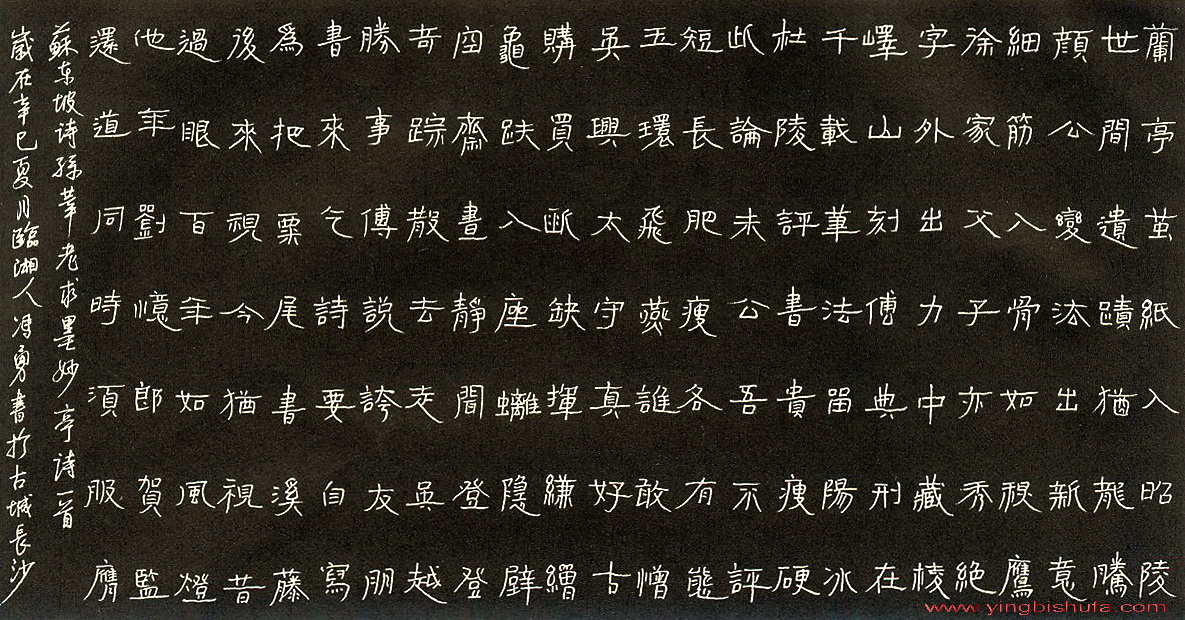 蘭亭茧紙入昭陵
世間遺蹟猶龍騰
顏公變法出新意
細筋入骨如秋鷹
徐家父子亦秀絕
字外出力中藏棱
嶧山刻傳典刑在
千載筆法留陽冰
杜陵評書貴瘦硬
此論未公吾不評
短長肥瘦各有態
玉環飛燕誰敢憎
吳興太守真好古
購買斷缺揮縑繒
龜趺入座螭隱壁
空齋晝靜聞登登
奇踪散去走吳越
勝事傳說誇友朋
書來乞詩要自寫
為把栗尾書溪藤
後來視今猶視昔
過眼百年如風燈
他年劉郎憶賀監
還道同時須服膺
蘇东坡诗孫莘老求墨妙亭诗一首
歲在辛巳夏月臨湘人冯勇書於古城長沙
www.yingbishufa.com